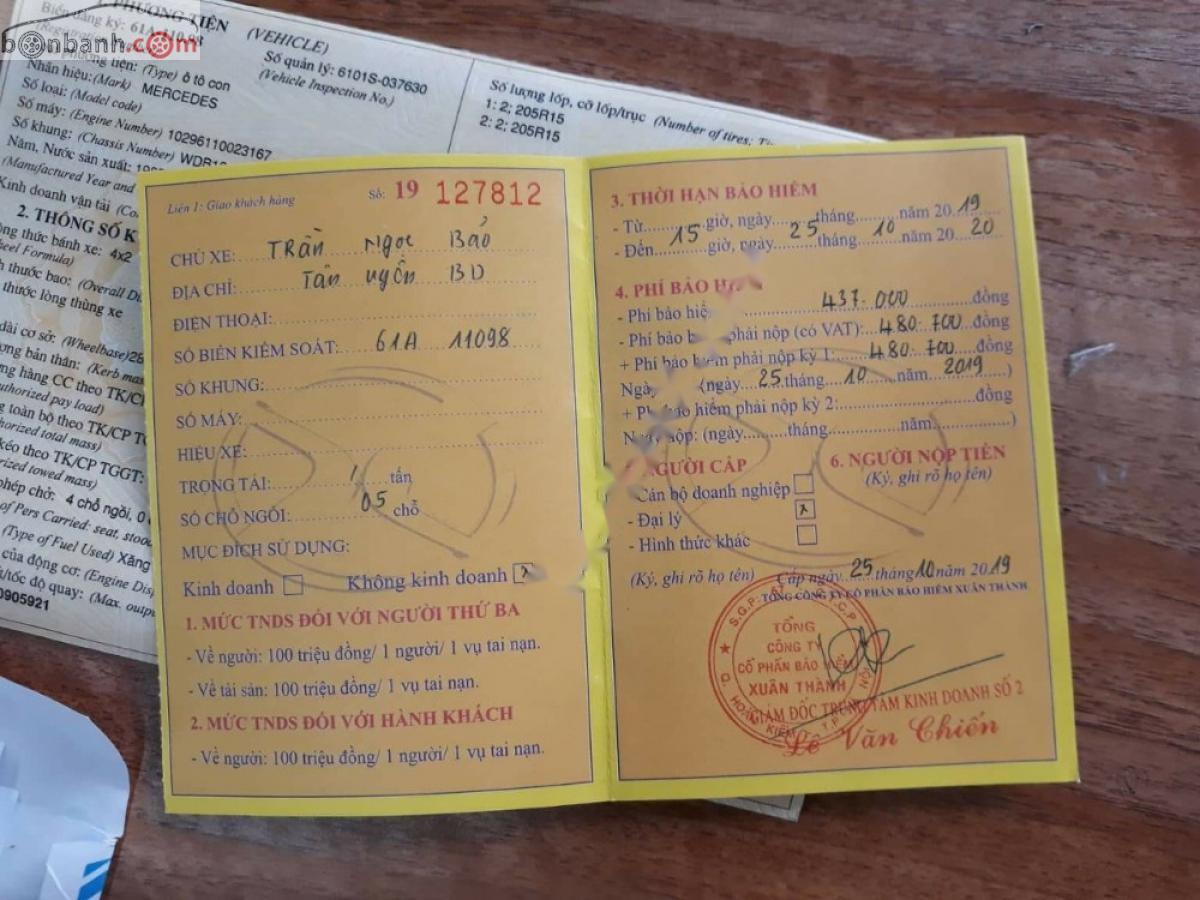 bonbanh.com
PHƯƠNG TIỆN (VEHICLE)
Biển đăng ký: 61A
Số quản lý: 6101S-037630
(Vehicle Inspection No.)
(Type) ô tô con
Nhãn hiệu: (Mark) MERCEDES
Số loại: (Model code)
Số máy: (Engine Number) 10296110023167
Số khung: (Chassis Number)
Năm, Nước sản xuất:
(Manufactured Year and
Kinh doanh vận tải
2. THÔNG SỐ K
thức bánh xe: 4x2
Formula)
thước bao: (Overall
thước lòng thùng xe
dài cơ sở: (Wheelbase)
bản thân: (Kerb
hàng CC theo TK/C
pay load)
toàn bộ theo TK/CP
total mass)
kéo theo TK/CP TGGT:
towed mass)
phép chở: 4 chỗ ngồi, 0
of Pers Carried: seat,
(Type of Fuel Used) Xăng
của động cơ: (Engine
tốc độ quay: (Max.
0905921
Số lượng lốp, cỡ lốp/trục (Number of tires;
1: 2; 205R15
2: 2; 205R15
Liên 1: Giao khách hàng
Số: 19 127812
CHỦ XE: Trần Ngọc Bảo
ĐỊA CHỈ: Tân Uyên BD
ĐIỆN THOẠI:
SỐ BIỂN KIỂM SOÁT: 61A 11098
SỐ KHUNG:
SỐ MÁY:
HIỆU XE:
TRỌNG TẢI: / tấn
SỐ CHỖ NGỒI: 05 chỗ
MỤC ĐÍCH SỬ DỤNG:
Kinh doanh Không kinh doanh x
1. MỨC TNDS ĐỐI VỚI NGƯỜI THỨ BA
- Về người: 100 triệu đồng/ 1 người/ 1 vụ tai nạn.
- Về tài sản: 100 triệu đồng/ 1 vụ tai nạn.
2. MỨC TNDS ĐỐI VỚI HÀNH KHÁCH
- Về người: 100 triệu đồng/ 1 người/ 1 vụ tai nạn.
3. THỜI HẠN BẢO HIỂM
- Từ giờ, ngày tháng năm 2019
- Đến 15 giờ, ngày 25 tháng 10 năm 2020
4. PHÍ BẢO H
- Phí bảo hiể 437.000 đồng
- Phí bảo phải nộp (có VAT): 480.700 đồng
+ Phí bảo hiểm phải nộp kỳ 1: 480.700 đồng
Ngày (ngày 25 tháng 10 năm 2019)
+ Phí bảo hiểm phải nộp kỳ 2: đồng
Ngày nộp: (ngày tháng năm )
NGƯỜI CẤP
- Cán bộ doanh nghiệp
- Đại lý x
- Hình thức khác
6. NGƯỜI NỘP TIỀN
(Ký, ghi rõ họ tên)
(Ký, ghi rõ họ tên) Cấp ngày 25 tháng 10 năm 2019
TỔNG CÔNG TY CỔ PHẦN BẢO HIỂM XUÂN THÀNH
TỔNG
CÔNG TY
CỔ PHẦN BẢO HIỂM
XUÂN THÀNH
GIÁM ĐỐC TRUNG TÂM KINH DOANH SỐ 2
Lê Văn Chiến